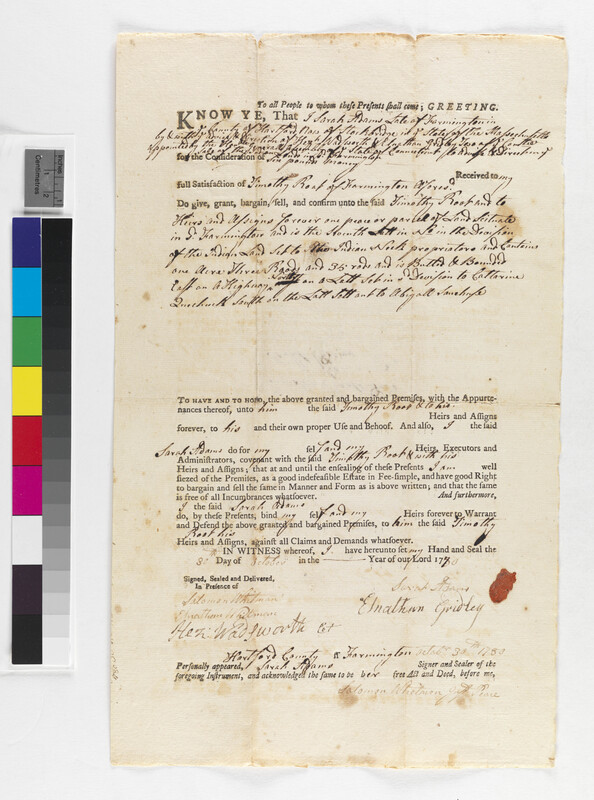 To all People to whom these Presents shall come; GREETING.
KNOW YE, That I Sarah Adams Late of Farmington in
ye County of Hartford Now of Stockbridge in ye State of the Massachusetts
by & with ye
appointed by the
for the Consideration of
pounds money
Received to my
full Satisfaction of Timothy Root of Farmington Aforesd
Do give, grant, bargain, sell, and confirm unto the said Timothy Root and to his
Heirs and Assigns forever one piece or parcel of Land Situate
in sd Farmington and is the Lott in the Division
of the Indian Land Set to Indian Neck proprietors and Contains
one Acre Three Roods and 35 rods and is Butted & Bounded
East on a Highway North on a Lott Set in sd Devision to Catharine
Quecheck South on the Lott Sett out to Abigail
To HAVE AND TO HOLD, the above granted and bargained Premises, with the Appurte-
nances thereof, unto him the said Timothy Root & to his
Heirs and Assigns
forever, to his and their own proper Use and Behoof. And also, I the said
Sarah Adams do for my self and my Heirs, Executors and
Administrators, covenant with the said Timothy Root & with his
Heirs and Assigns; that at and until the ensealing of these Presents I am well
siezed of the Premises, as a good indefeasible Estate in Fee-simple, and have good Right
to bargain and sell the same in Manner and Form as is above written; and that the same
is free of all Incumbrances whatsoever. And furthermore,
I the said Sarah Adams
do, by these Presents, bind my self and my Heirs forever to Warrant
and Defend the above granted and bargained Premises, to him the said Timothy
Root his
Heirs and Assigns, against all Claims and Demands whatsoever.
IN WITNESS whereof, I have hereunto set my Hand and Seal the
30 Day of October in the Year of our Lord 1780
Signed, Sealed and Delivered,
In Presence of
Sarah Adams
Solomon Whitman
Elnathan Gridley
Hez: Wadsworth
Hartford County ss Farmington 1780
Personally appeared, Sarah Adams Signer and Sealer of the
foregoing Instrument, and acknowledged the same to be her free Act and Deed, before me,
Solomon Whitman Just Peace
Centimetres
Inches